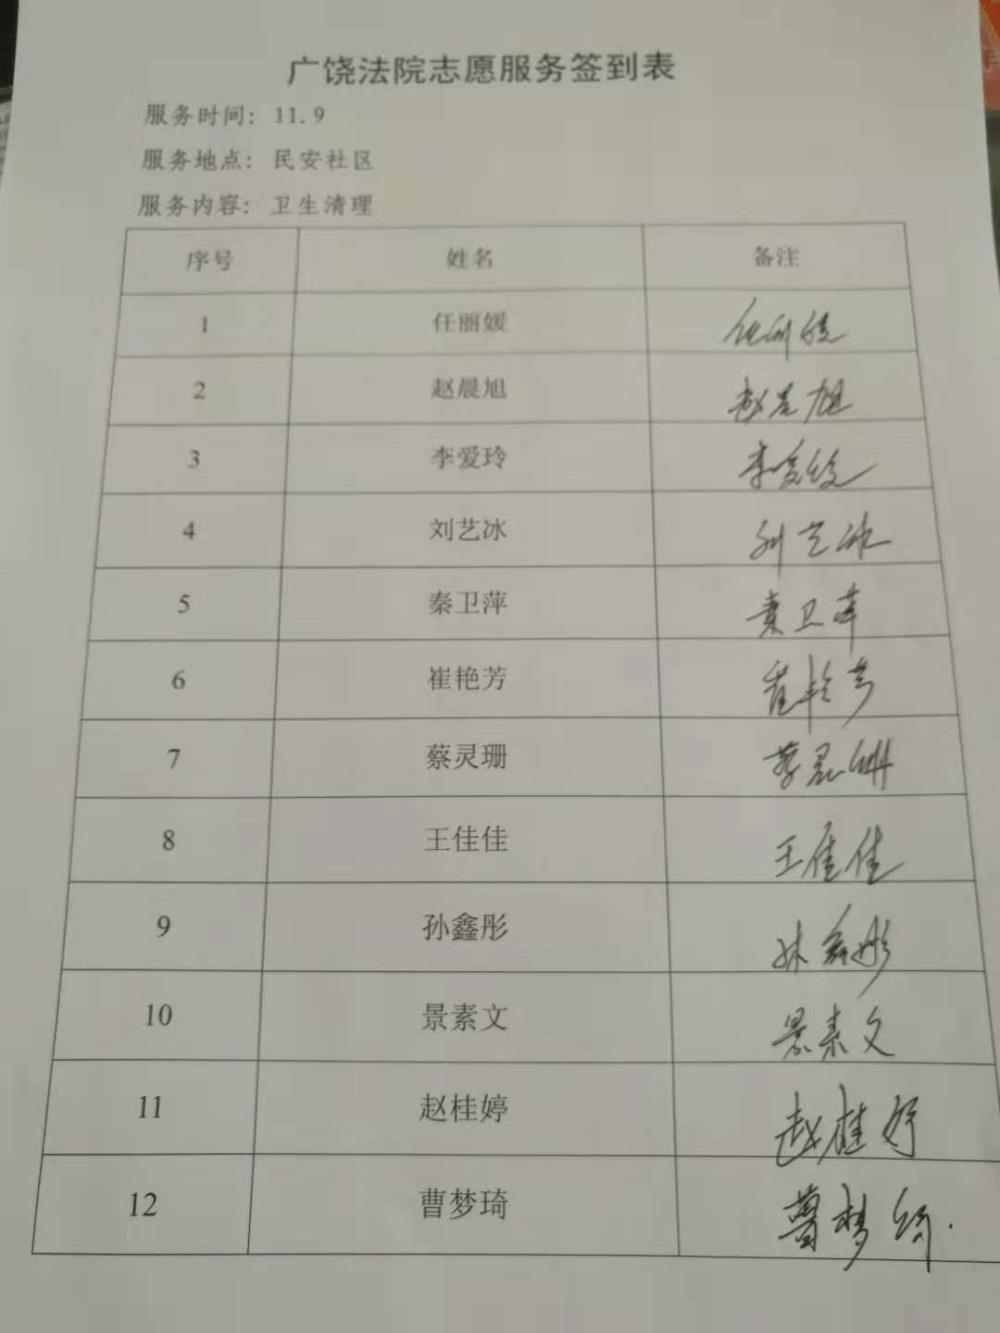 广饶法院志愿服务签到表
服务时间：11.9
服务地点：民安社区
服务内容：卫生清理
序号 姓名 备注
1 任丽媛 任丽媛
2 赵晨旭 赵晨旭
3 李爱玲 李爱玲
4 刘艺冰 刘艺冰
5 秦卫萍 秦卫萍
6 崔艳芳 崔艳芳
7 蔡灵珊 蔡灵珊
8 王佳佳 王佳佳
9 孙鑫彤 孙鑫彤
10 景素文 景素文
11 赵桂婷 赵桂婷
12 曹梦琦 曹梦琦